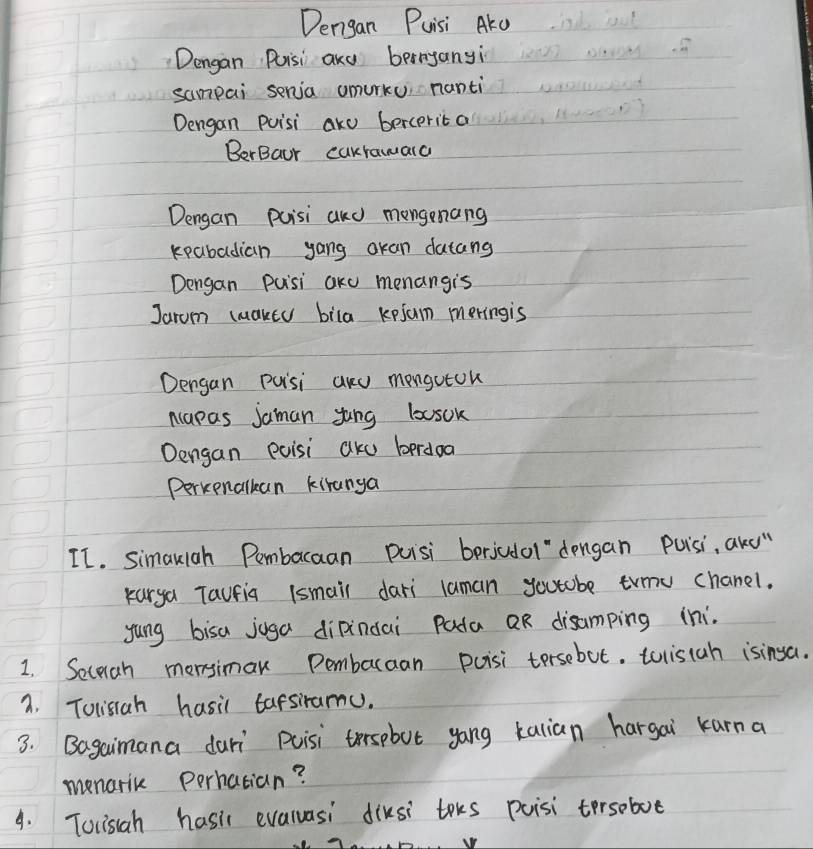 Dengan Puisi Aku
Dengan Puisi aku bernyanyi
sampai senja umurku nanti
Dengan puisi aku bercerita
BerBaur cakrawala
Dengan puisi aku mengenang
keabadian yang akan datang
Dengan puisi aku menangis
Jarum waktu bila kejam meringis
Dengan puisi aku mengutuk
Napas jaman yang busuk
Dengan puisi aku berdoa
Perkenalkan kiranya
II. Simaklah Pembacaan puisi berjudul "dengan puisi, aku"
karya Taufiq Ismail dari laman youtube tvmu chanel.
yang bisa juga dipindai pada QR disamping ini.
1. Setelah menyimak Pembacaan puisi tersebut. tulislah isinya.
2. Tulislah hasil tafsiramu.
3. Bagaimana dari puisi tersebut yang kalian hargai karna
menarik Perhatian?
4. Tulislah hasil evaluasi diksi teks puisi tersebut